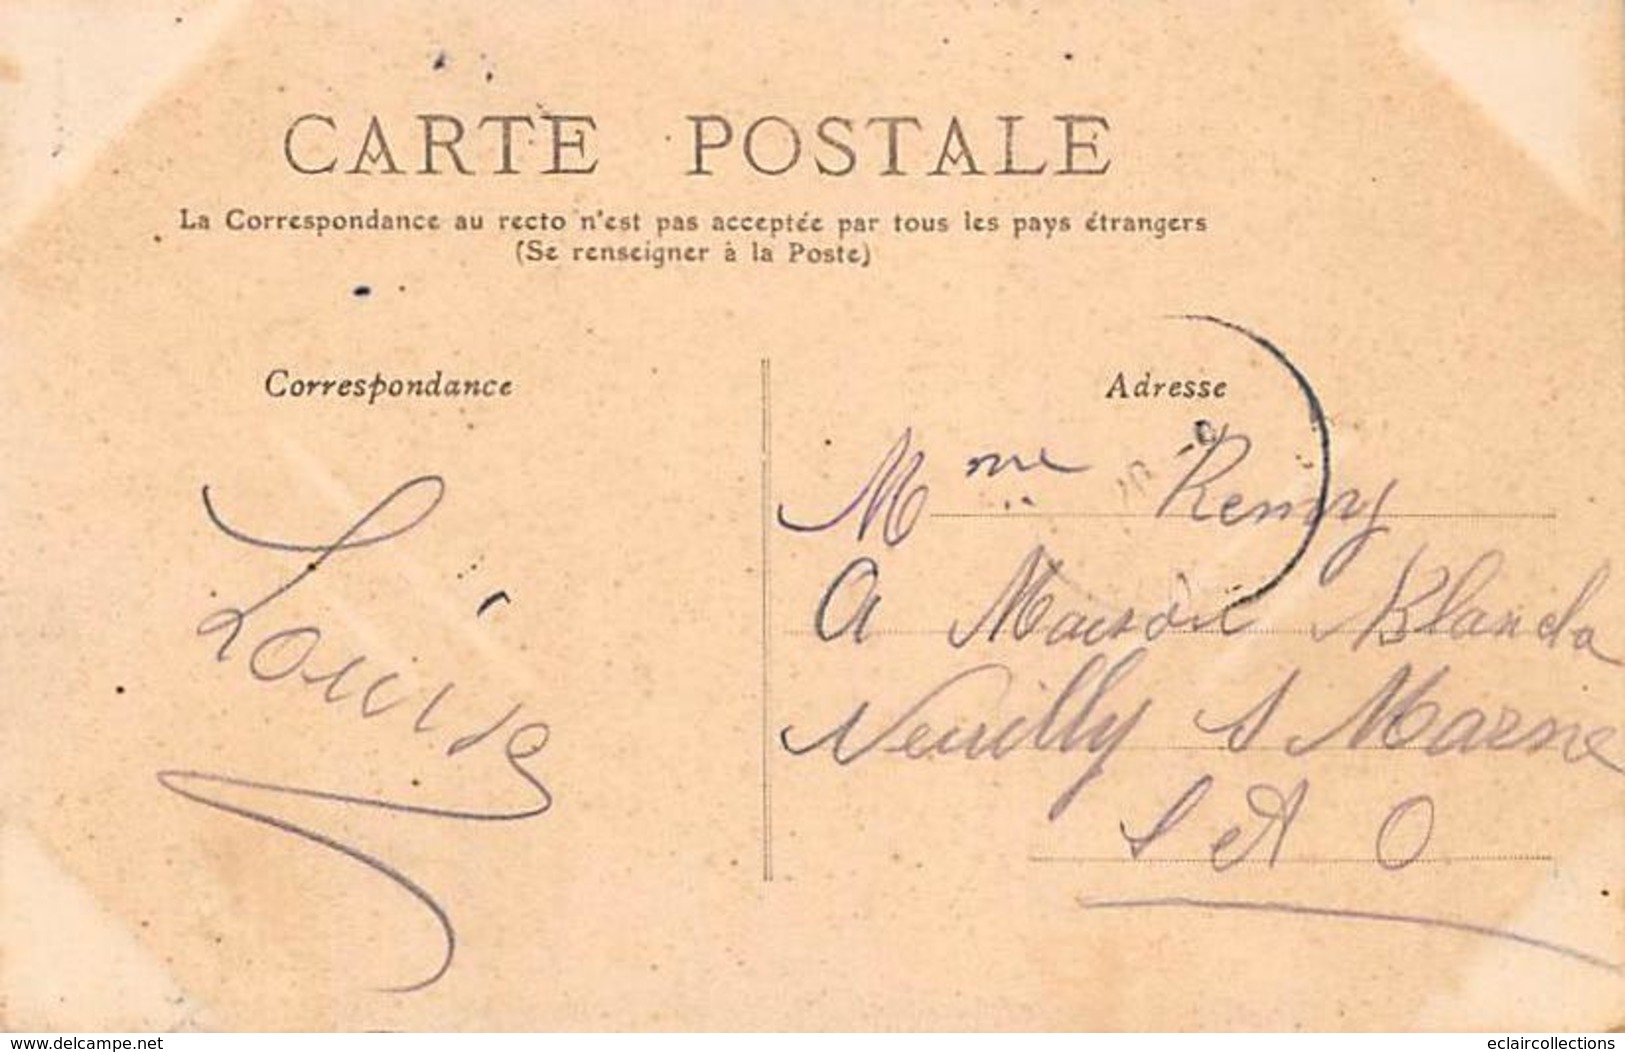 CARTE POSTALE
La Correspondance au recto n'est pas acceptée par tous les pays étrangers
(Se renseigner à la Poste)
Correspondance
Adresse
Louise
Mme Remy
A Maison Blanche
Neuilly s Marne
S et O
www.delcampe.net
eclaircollections